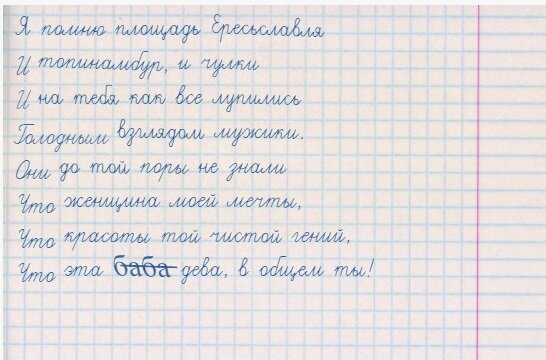 Я помню площадь Ересьславля
И топинамбур, и чулки
И на тебя как все лупились
Голодным взглядом мужики.
Они до той поры не знали
Что женщина моей мечты,
Что красоты той чистой гений,
Что эта баба дева, в общем ты!